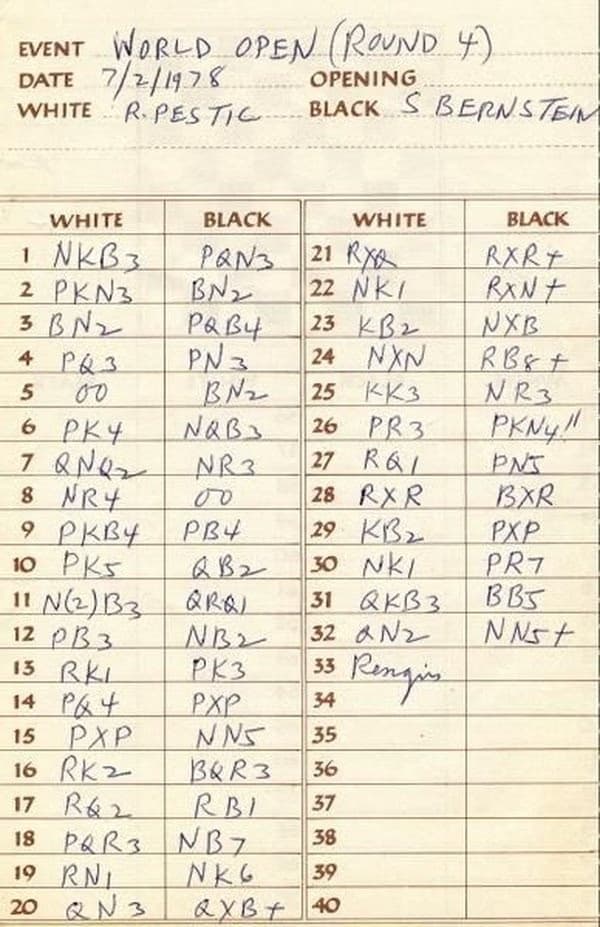 EVENT WORLD OPEN (ROUND 4)
DATE 7/2/1978 OPENING
WHITE R. PESTIC BLACK S BERNSTEIN
WHITE BLACK WHITE BLACK
1 NKB3 PQN3 21 RXQ RXR+
2 PKN3 BN2 22 NK1 RXN+
3 BN2 PQB4 23 KB2 NXB
4 PQ3 PN3 24 NXN RB8+
5 OO BN2 25 KK3 NR3
6 PK4 NQB3 26 PR3 PKN4!!
7 QNQ2 NR3 27 RQ1 PN5
8 NR4 OO 28 RXR BXR
9 PKB4 PB4 29 KB2 PXP
10 PK5 QB2 30 NK1 PR7
11 N(2)B3 QRQ1 31 QKB3 BB5
12 PB3 NB2 32 QN2 NN5+
13 RK1 PK3 33 Rengis
14 PQ4 PXP 34
15 PXP NN5 35
16 RK2 BQR3 36
17 RQ2 RB1 37
18 PQR3 NB7 38
19 RN1 NK6 39
20 QN3 QXB+ 40